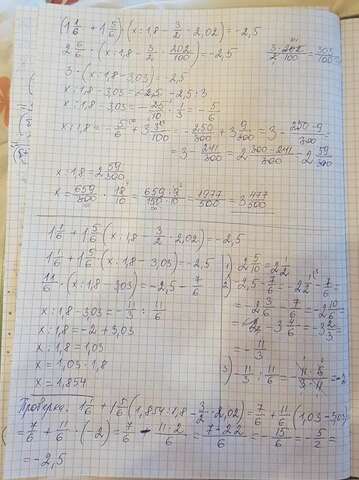 (1 1/6 + 1 5/6) · (x : 1,8 - 3/2 · 2,02) = -2,5
2 6/6 · (x : 1,8 - 3/2 · 202/100) = -2,5
3 · (x : 1,8 - 3,03) = -2,5
x : 1,8 - 3,03 = -2,5 : 3
x : 1,8 - 3,03 = -25/10 · 1/3 = -5/6
x : 1,8 = -5/6 + 3 3/100 = -250/300 + 3 9/300 = 3 - 250-9/300 =
= 3 - 241/300 = 2 300-241/300 = 2 59/300
x : 1,8 = 2 59/300
x = 659/300 · 18/10 = 1977/500 = 3 477/500
1 1/6 + 1 5/6 · (x : 1,8 - 3/2 · 2,02) = -2,5
1 1/6 + 1 5/6 · (x : 1,8 - 3,03) = -2,5
11/6 · (x : 1,8 - 3,03) = -2,5 - 7/6
x : 1,8 - 3,03 = -11/3 : 11/6
x : 1,8 = -2 + 3,03
x : 1,8 = 1,03
x = 1,03 · 1,8
x = 1,854
1) 2 5/10 = 2 1/2
2) -2,5 - 7/6 = -2 1/2 - 7/6 =
= -2 3/6 - 7/6 = -2 10/6 =
= -3 4/6 = -3 2/3 =
= -11/3
Проверка: 1 1/6 + 1 5/6 (1,854 : 1,8 - 3/2 · 2,02) = 7/6 + 11/6 (1,03 - 3,03)
= 7/6 + 11/6 · (-2) = 7/6 - 11·2/6 = 7-22/6 = -15/6 = -5/2 =
= -2,5